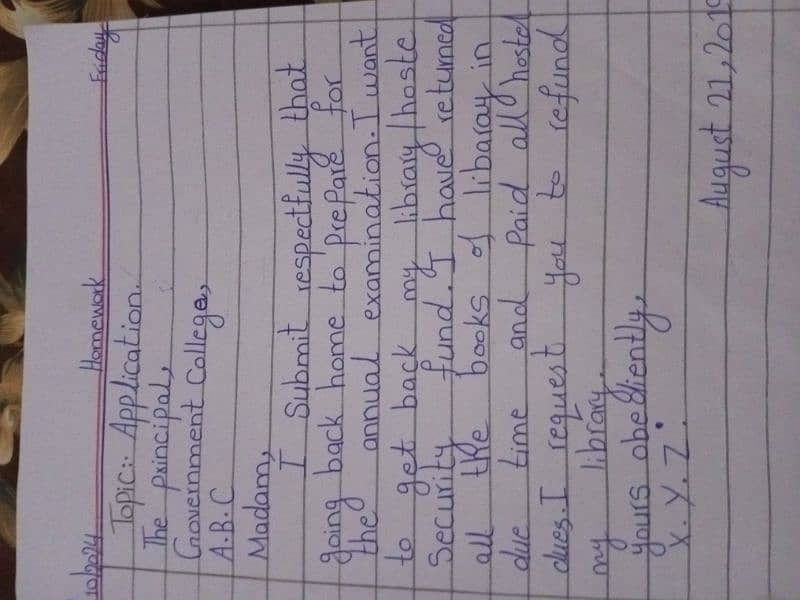 10/2024 Homework Friday
Topic:- Application.
The principal,
Government College,
A.B.C
Madam,
I Submit respectfully that
going back home to prepare for
the annual examination. I want
to get back my library/hoste
Security fund. I have returned
all the books of libaray in
due time and Paid all hostel
dues. I request you to refund
my library.
yours obediently,
X.Y.Z.
August 21, 201